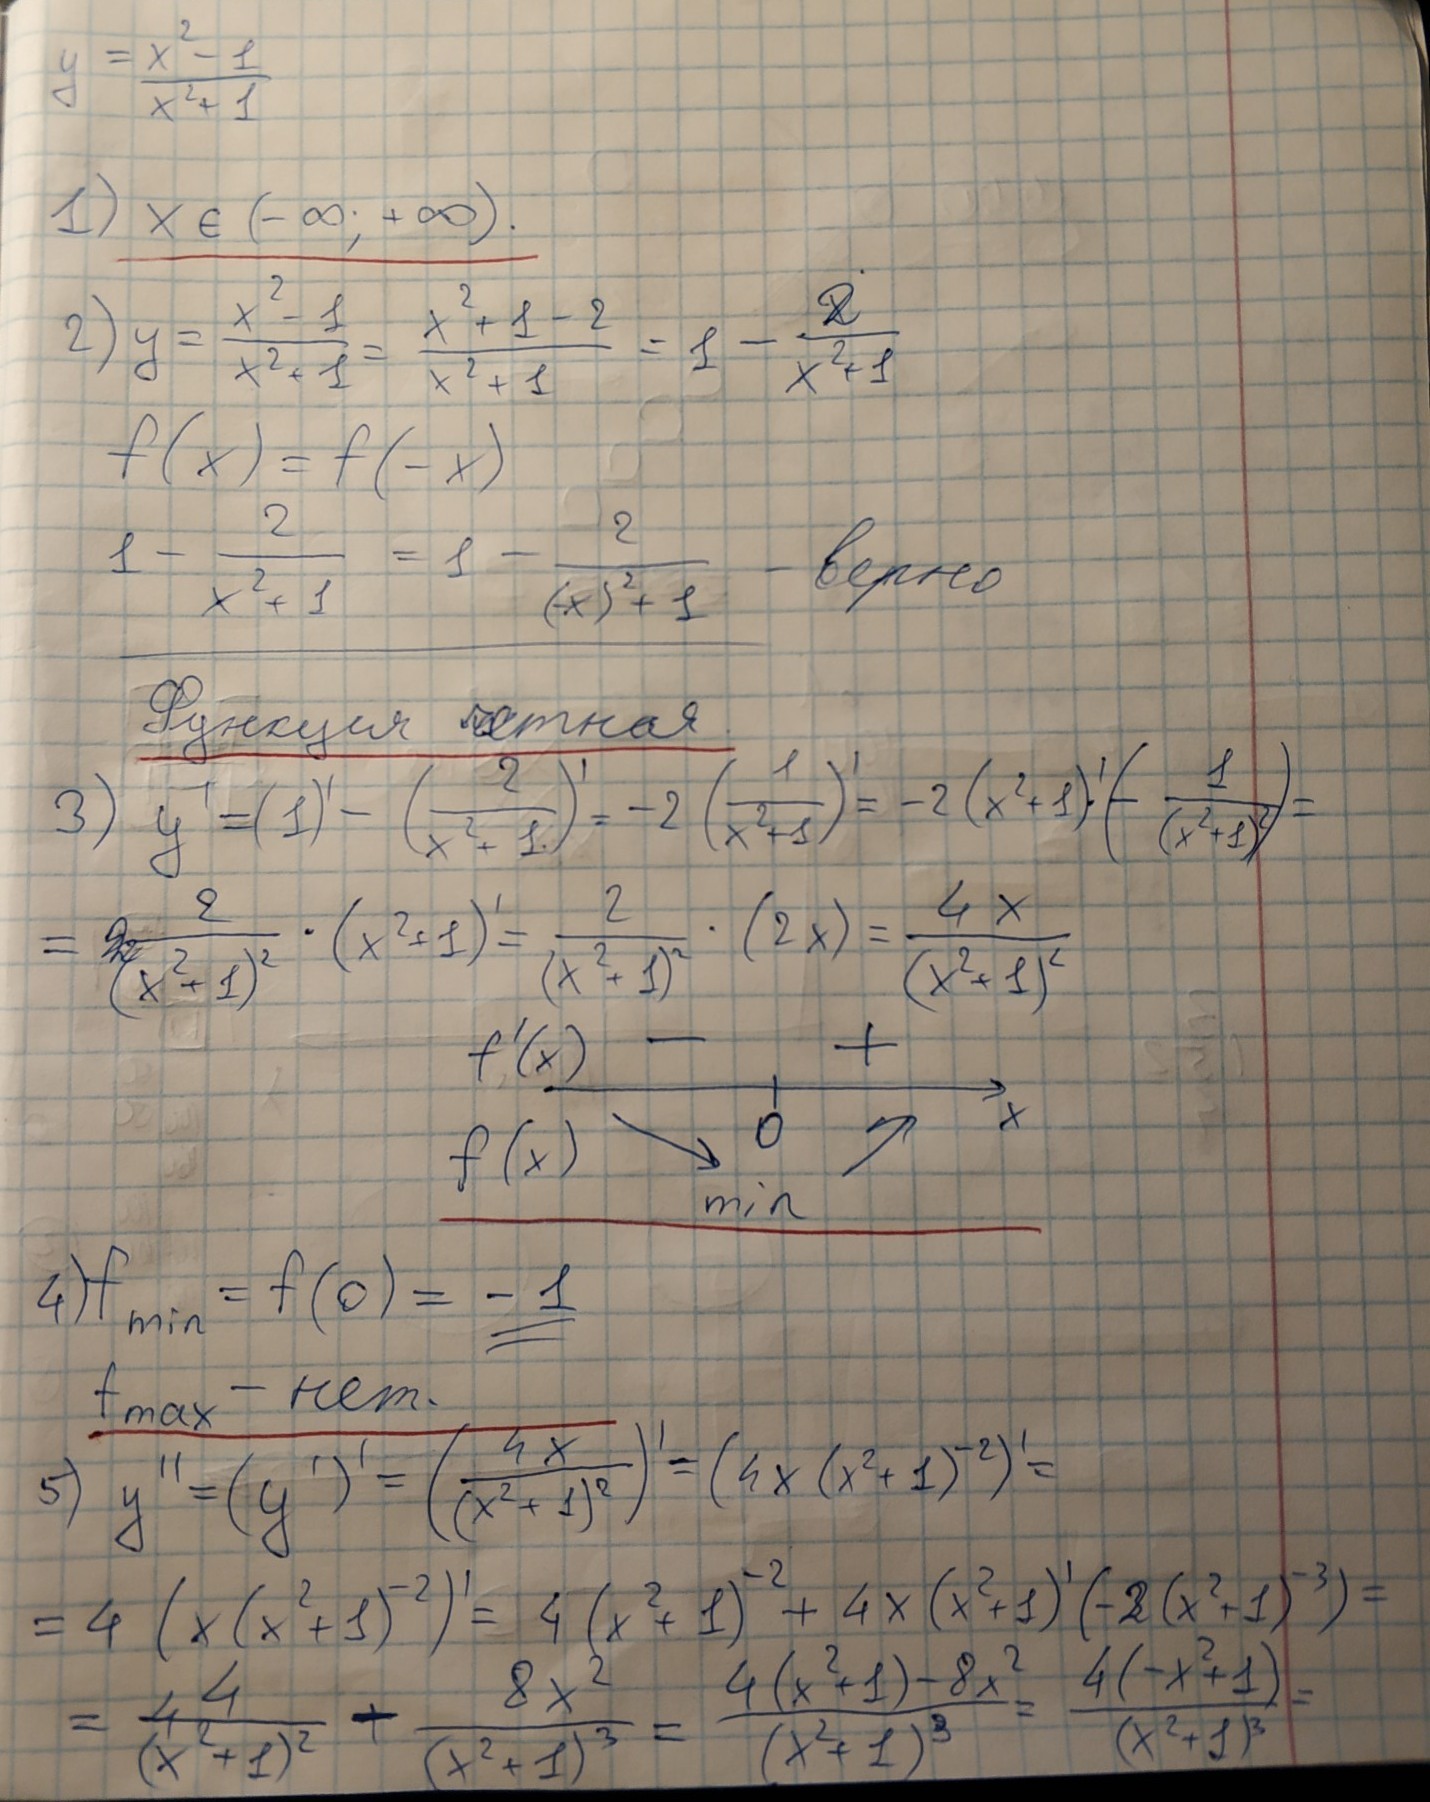 y = (x² - 1)/(x² + 1)
1) x ∈ (-∞; +∞).
2) y = (x² - 1)/(x² + 1) = (x² + 1 - 2)/(x² + 1) = 1 - 2/(x² + 1)
f(x) = f(-x)
1 - 2/(x² + 1) = 1 - 2/((-x)² + 1) - верно
Функция четная.
3) y' = (1)' - (2/(x² + 1))' = -2(1/(x² + 1))' = -2(x² + 1)' · (- 1/(x² + 1)²) =
= 2/(x² + 1)² · (x² + 1)' = 2/(x² + 1)² · (2x) = 4x/(x² + 1)²
f'(x) - +
0 x
f(x)
min
4) f min = f(0) = -1
f max - нет.
5) y'' = (y')' = (4x/(x² + 1)²)' = (4x(x² + 1)⁻²)' =
= 4(x(x² + 1)⁻²)' = 4(x² + 1)⁻² + 4x(x² + 1)'(-2(x² + 1)⁻³) =
= 4/(x² + 1)² - 8x²/(x² + 1)³ = (4(x² + 1) - 8x²)/(x² + 1)³ = 4(-x² + 1)/(x² + 1)³ =